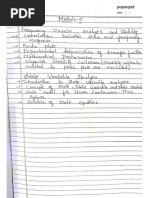 papergrid
Date: / /
Module-5
→ Frequency Domain Analysis and Stability
→ Correlation between time and frequency
response
→ Bode Plot
→ Experimental determination of transfer function
→ Mathematical Preliminaries
→ Nyquist Stability Criterion (Mathematical
related to polar plot are excluded)
State Variable Analysis
→ Introduction to State variable analysis
→ Concept of State, State Variable and State model
→ State model for Linear Continuous-Time
→ Solution of State equations